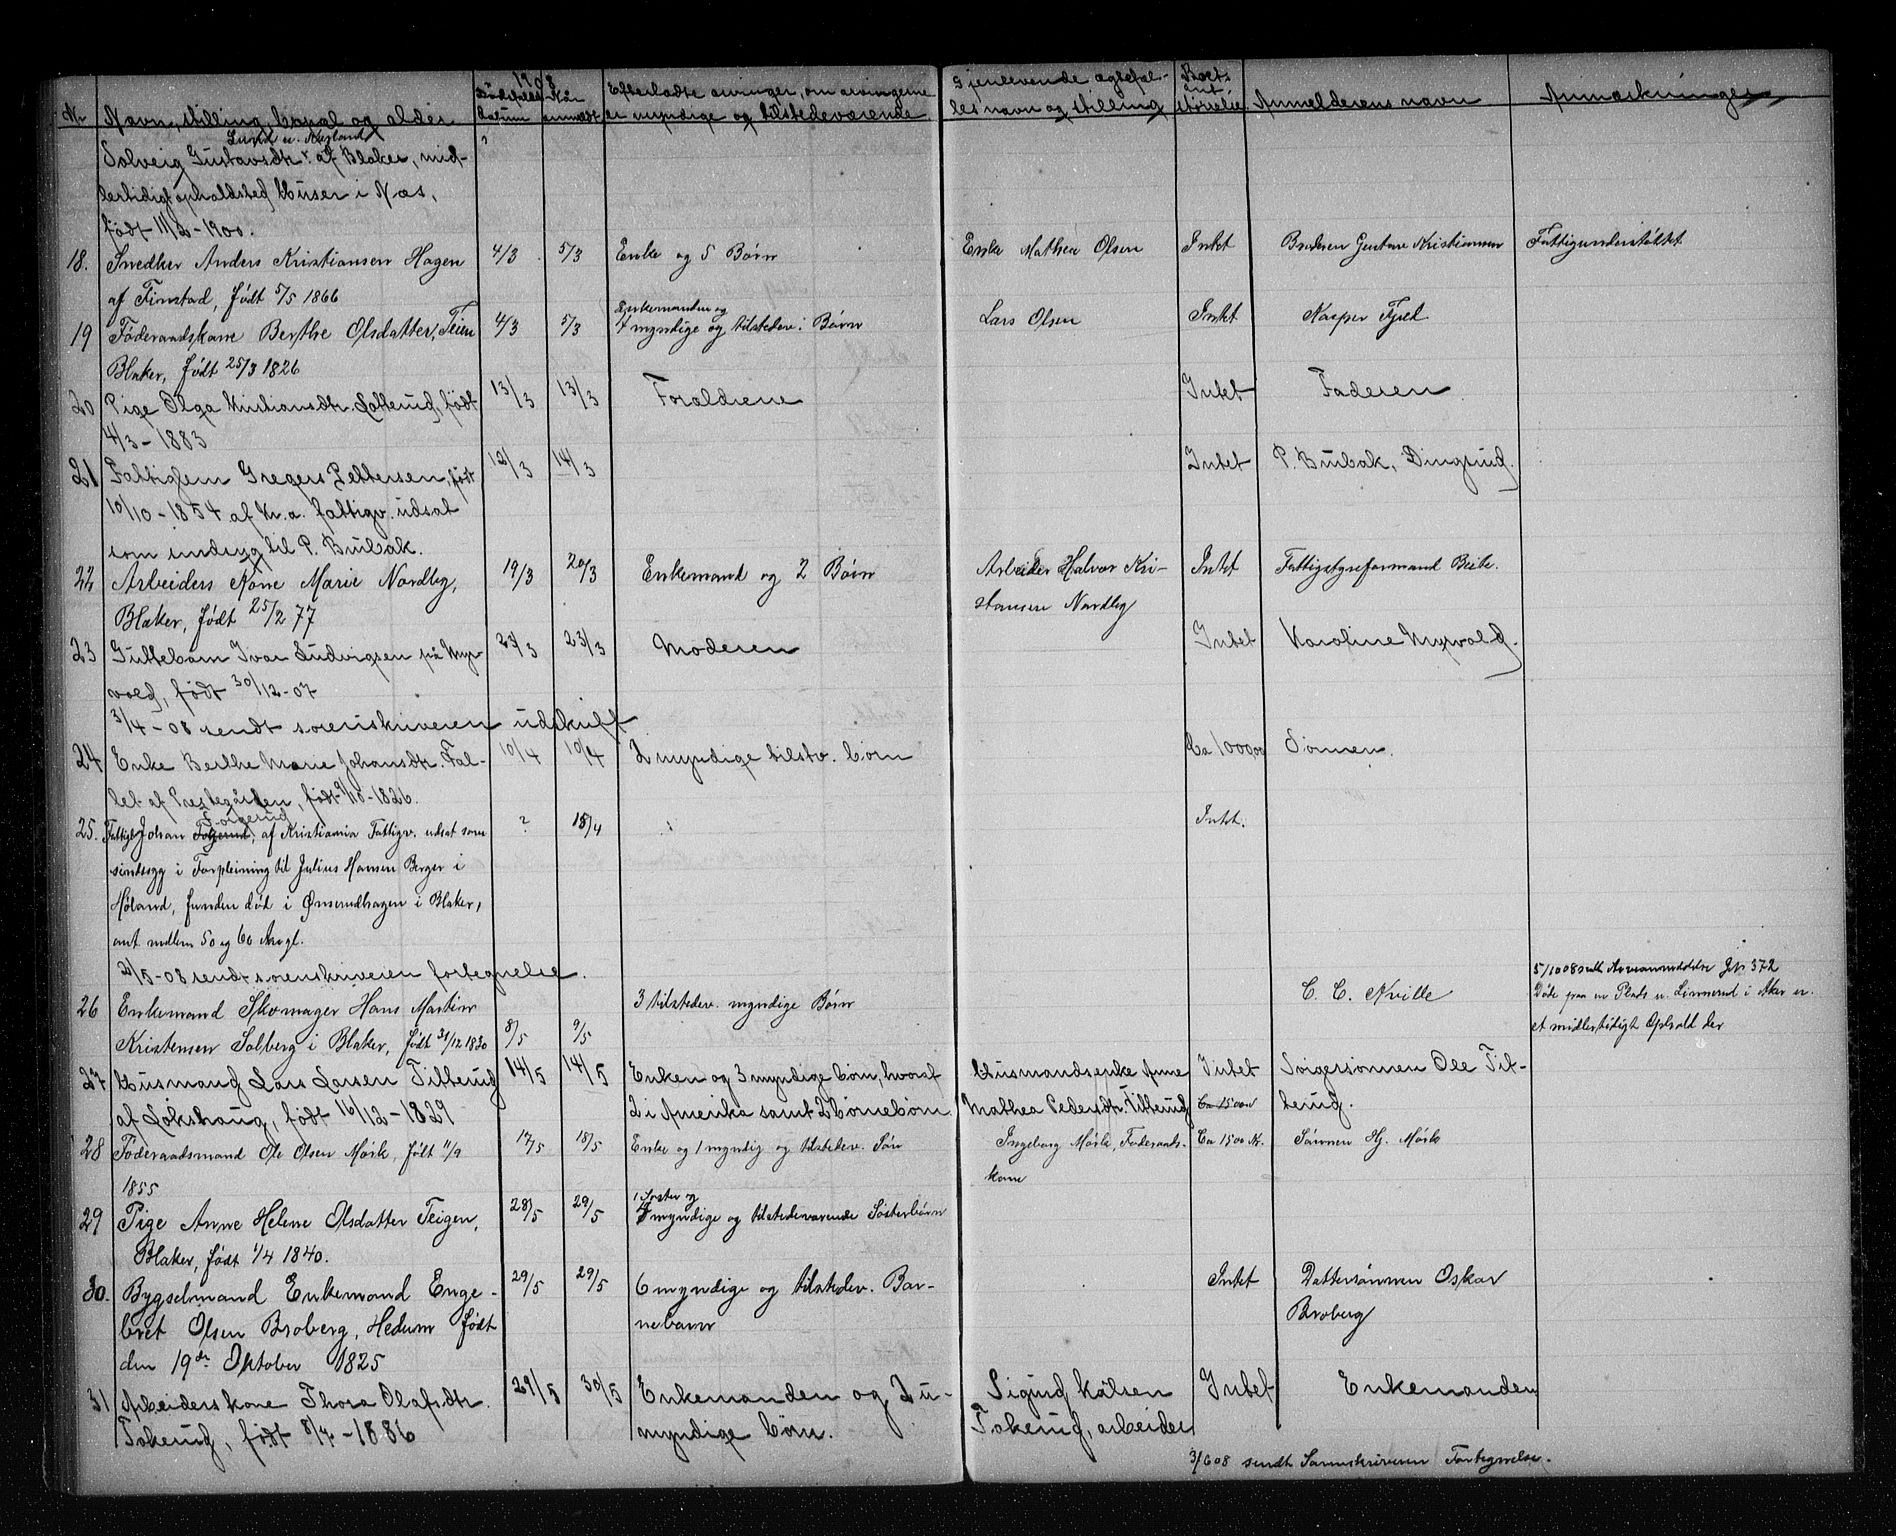 1908
Nr Navn, stilling, bopæl og alder Dødsfaldsdatum Når anmeldt Efterladte arvinger, om arvingerne er myndige og tilstedeværende Gjenlevende ægtefælles navn og stilling Boets størrelse Anmelderens navn Anmærkninger
Lund u.
Solveig Gustavsdtr. af Blaker, mid-
lertidigt opholdsted Huser i Næs,
født 11/2-1900.
18. Snedker Anders Kristiansen Hagen 4/3 5/3 Enke og 5 Børn Enke Mathea Olsen Intet Broderen Gustav Kristiansen Fattigunderstøttet
af Finstad, født 5/5 1866
Enkemanden og
19 Føderaadskone Berthe Olsdatter, Teien 4/3 5/3 myndige og tilstedev. Børn Lars Olsen Intet Kasper Fjeld
Blaker, født 25/3 1826
20 Pige Olga Kristiansdtr. født 13/3 13/3 Forældrene Intet Faderen
4/3-1883
21 Fattiglem Gregers Pettersen, født 12/3 14/3 Intet P. Bulak, Dingsrud.
10/10-1854 af Kr.a. fattigv. udsat
som sindsyg til P. Bulak.
22 Arbeiders Kone Marie Nordby, 19/3 20/3 Enkemand og 2 Børn Arbeider Halvor Kri- Intet Fattigstyreformand
Blaker, født 25/2 77 stiansen Nordby
23 Guttebarn Ivar Ludvigsen på Myr- 23/3 23/3 Moderen Intet Karoline Myrvold.
vold, født 30/12-07
3/4-08 sendt sorenskriveren udskrift
24 Enke Berthe Marie Johansdtr. Fal- 10/4 10/4 2 myndige tilstv. børn Ca 1000,00 Sønnen.
let af Prestegården, født -1826.
25. Fattigl. Johan af Kristiania Fattigv. udsat som ? 18/4 Intet.
sindssyg i Forpleining til Julius Hansen Berger i
Høland, funden død i Ønserudhagen i Blaker,
ant. mellem 50 og 60 Aar gl.
2/5-08 sendt sorenskriveren fortegnelse.
26 Enkemand Skomager Hans Martin 3 tilstedev. myndige Børn C. C. Kville
5/10 08 Jr. 372
Døde paa en Plads u. Linnerud i Aker
Kristensen Solberg i Blaker, født 31/12 1830 8/5 9/5 et midlertidigt Ophold der
27 Husmand Lars Larsen Titterud 14/5 14/5 Enken og 3 myndige børn, hvoraf Husmandsenke Anne Intet Svigersønnen Ole Tit-
af Løkshaug, født 16/12-1829 2 i Amerika samt 2 børnebørn Mathea Pedersdtr. Titterud Ca 1500 terud.
28 Føderaadsmand Ole Olsen Mørk, født 11/9 17/5 18/5 Enke og 1 myndig og tilstedev. Søn Ingeborg Mørk, Føderaads- Ca 1500 K. Sønnen Hj. Mørk
1855 kone
1 Søster og
29 Pige Anne Helene Olsdatter Teigen, 28/5 29/5 myndige og tilstedeværende Søsterbørn
Blaker, født 1/4 1840.
30. Bygselmand Enkemand Enge- 29/5 29/5 6 myndige og tilstedev. Bar- Intet Dattersønnen Oskar
bret Olsen Broberg, Hedum født nebarn Broberg
den 19de Oktober 1825
31 Arbeiderskone Thora Olafsdtr. 29/5 30/5 Enkemanden og 2 u- Sigurd Kølsen Intet Enkemanden
Tokerud, født 8/4-1886 myndige børn. Tokerud, arbeider
3/6 08 sendt Sorenskriveren Fortegnelse.